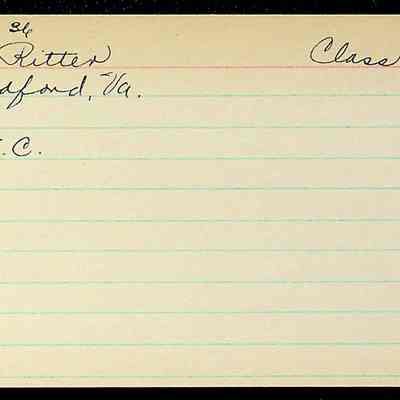 36
Ritter Class
dford, Va.
. C.